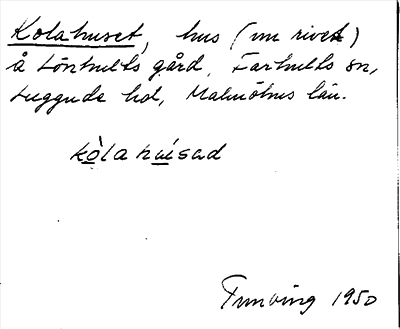 Kolahuset, hus (nu rivet)
å Lönhults gård, Farhults sn,
Luggude hd, Malmöhus län.
kòlahúsad
1950